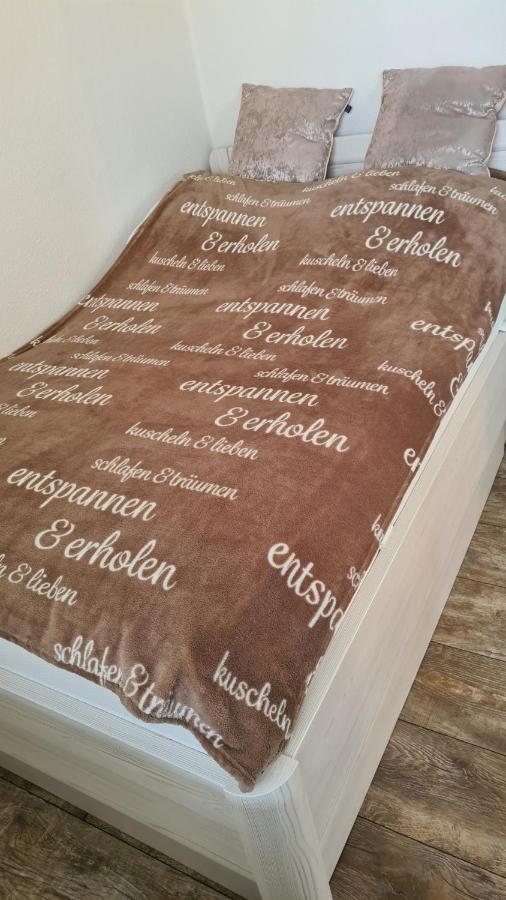 lieben
kuscheln & lieben
schlafen & träumen
schlafen & träumen
entspannen
& erholen
entspannen
& erholen
kuscheln & lieben
kuscheln & lieben
schlafen & träumen
schlafen & träumen
entspannen
& erholen
entspannen
& erholen
entsp
kuscheln & lieben
schlafen & träumen
kuscheln &
schlafen & träumen
entspannen
& erholen
entspannen
& erholen
& lieben
kuscheln & lieben
schlafen & träumen
entspannen
& erholen
entspa
& lieben
schlafen & träumen
kuscheln